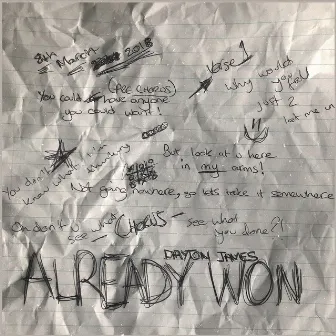 8th March 2018
(Ace CHORDS)
Verse 1
You could have anyone
you could want!
Why would you go girl
just 2
let me in
You don't
know what I'm thinking
But look at u here
in my arms!
Not going nowhere, so lets take it somewhere
Oh don't u
see what
- CHORUS -
see what
you done?!
DAYTON JAMES
ALREADY WON